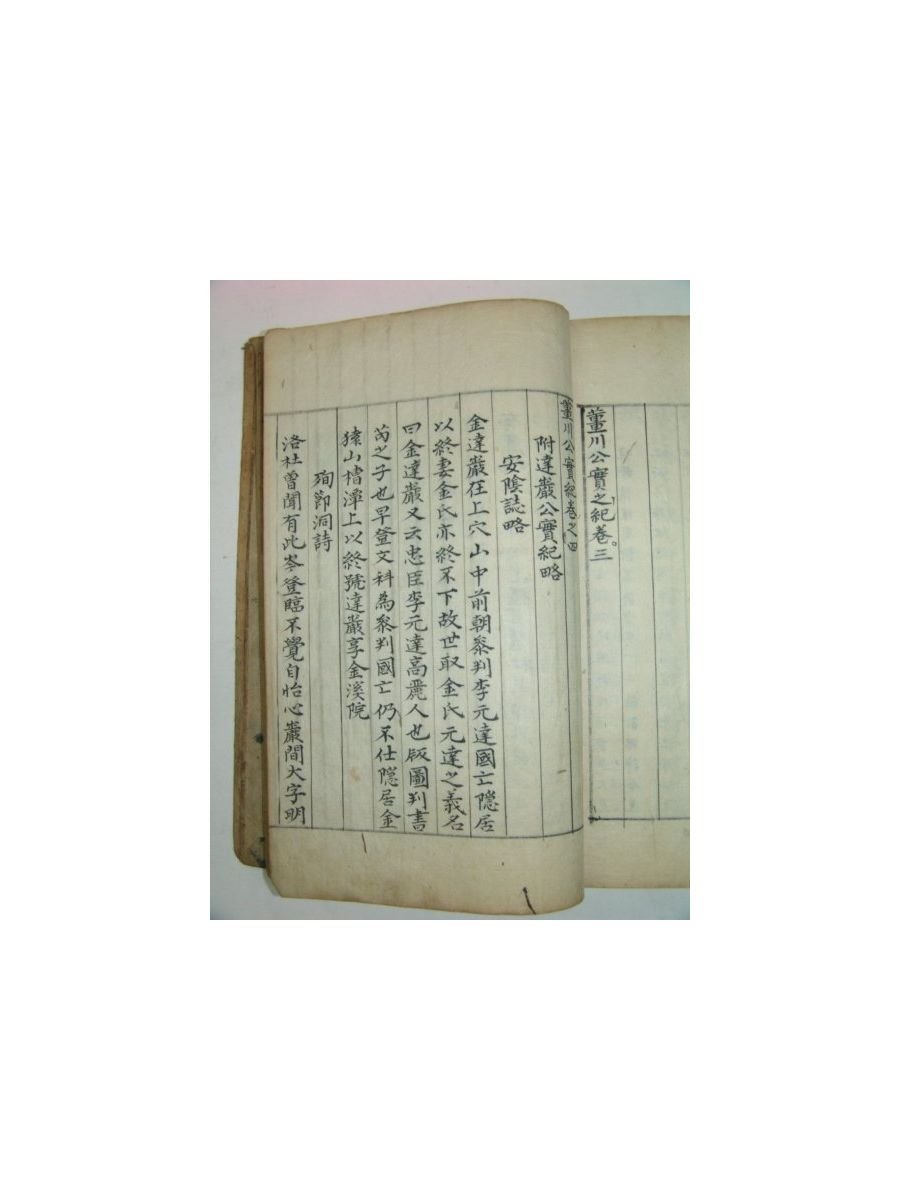 董川公實之紀卷三
董川公實紀卷之四
附達巖公實紀略
安陰誌略
金達巖在上穴山中前朝叅判李元達國亡隱居
以終妻金氏亦終不下故世取金氏元達之義名
曰金達巖又云忠臣李元達高麗人也版圖判書
芮之子也早登文科為叅判國亡仍不仕隱居金
猿山槽潭上以終號達巖享金溪院
殉節洞詩
洛社曾聞有此岑登臨不覺自怡心巖間大字明